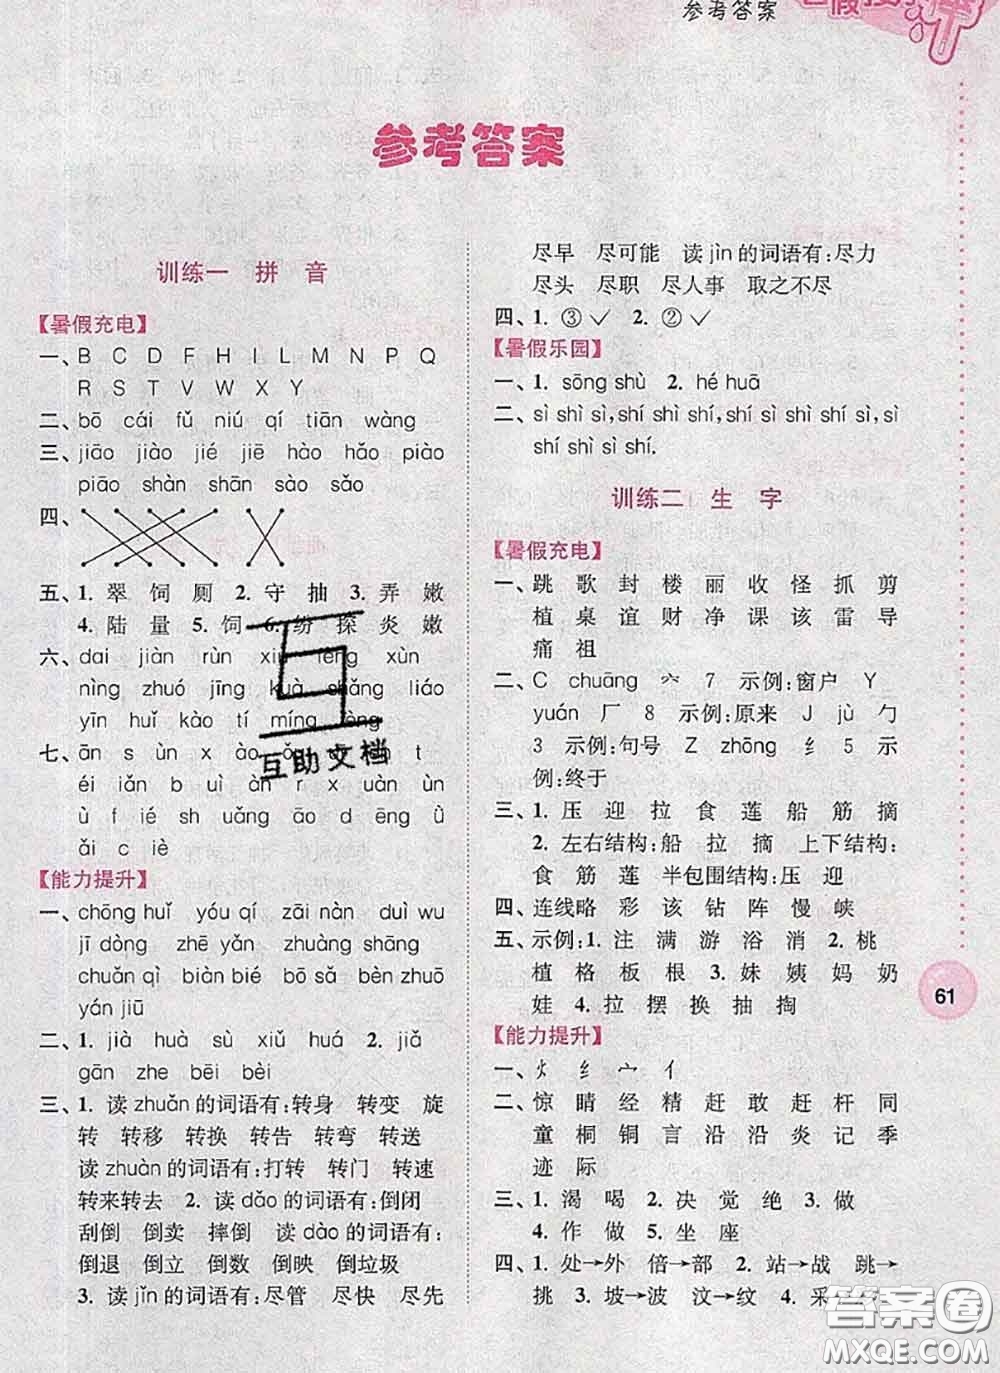 参考答案
参考答案
训练一 拼 音
【暑假充电】
一、B C D F H L M N P Q
R S T V W X Y
二、bō cái fǔ niú qí tiān wàng
三、jiāo jiào jié jiē hào hǎo piào
piāo shàn shān sào sǎo
四、
五、1. 翠 饲 厕 2. 守 抽 3. 弄 嫩
4. 陆 量 5. 饲 6. 纷 探 炎 嫩
六、dai jiàn rùn xiù lěng xùn
nìng zhuó jīng kuà shǎng liáo
yīn huǐ kào tí míng
七、ān s ùn x ào t
éi iǎn b ài àn r x uàn èn
ù f ié sh uǎng āo d ēng ǜ
ǎi c iè
【能力提升】
一、chōng huǐ yóu qí zāi nàn duì wu
jī dòng zhē yǎn zhuāng shāng
chuǎn qì biàn bié bō sǎ bèn zhuō
yán jiū
二、1. jià huà sù xiǔ huá 2. jiǎ
gān zhe bēi bèi
三、1. 读 zhuǎn 的词语有:转身 转变 旋
转 转移 转换 转告 转弯 转送
读 zhuàn 的词语有:打转 转门 转速
转来转去 2. 读 dǎo 的词语有:倒闭
刮倒 倒卖 摔倒 读 dào 的词语有:
倒退 倒立 倒数 倒映 倒垃圾
3. 读 jǐn 的词语有:尽管 尽快 尽先
尽早 尽可能 读 jìn 的词语有:尽力
尽头 尽职 尽人事 取之不尽
四、1. ③✓ 2. ②✓
【暑假乐园】
一、1. sōng shù 2. hé huā
二、sì shì sì, shí shì shí, shí sì shì shí sì, sì
shí shì sì shí.
训练二 生 字
【暑假充电】
一、跳 歌 封 楼 丽 收 怪 抓 剪
植 桌 谊 财 净 课 该 雷 导
痛 祖
二、C chuāng 穴 7 示例:窗户 Y
yuán 厂 8 示例:原来 J jù 勹
3 示例:句号 Z zhōng 纟 5 示
例:终于
三、1. 压 迎 拉 食 莲 船 筋 摘
2. 左右结构:船 拉 摘 上下结构:
食 筋 莲 半包围结构:压 迎
四、连线略 彩 该 钻 阵 慢 峡
五、示例:1. 注 满 游 浴 消 2. 桃
植 格 板 根 3. 妹 姨 妈 奶
娃 4. 拉 摆 换 抽 掏
【能力提升】
一、犭 纟 宀 亻
二、惊 睛 经 精 赶 敢 赶 杆 同
童 桐 铜 言 沿 沿 炎 记 季
迹 际
三、1. 渴 喝 2. 决 觉 绝 3. 做
4. 作 做 5. 坐 座
四、1. 处→外 倍→部 2. 站→战 跳→
挑 3. 坡→波 汶→纹 4. 采
61
互助文档
答案圈
MXQE.COM